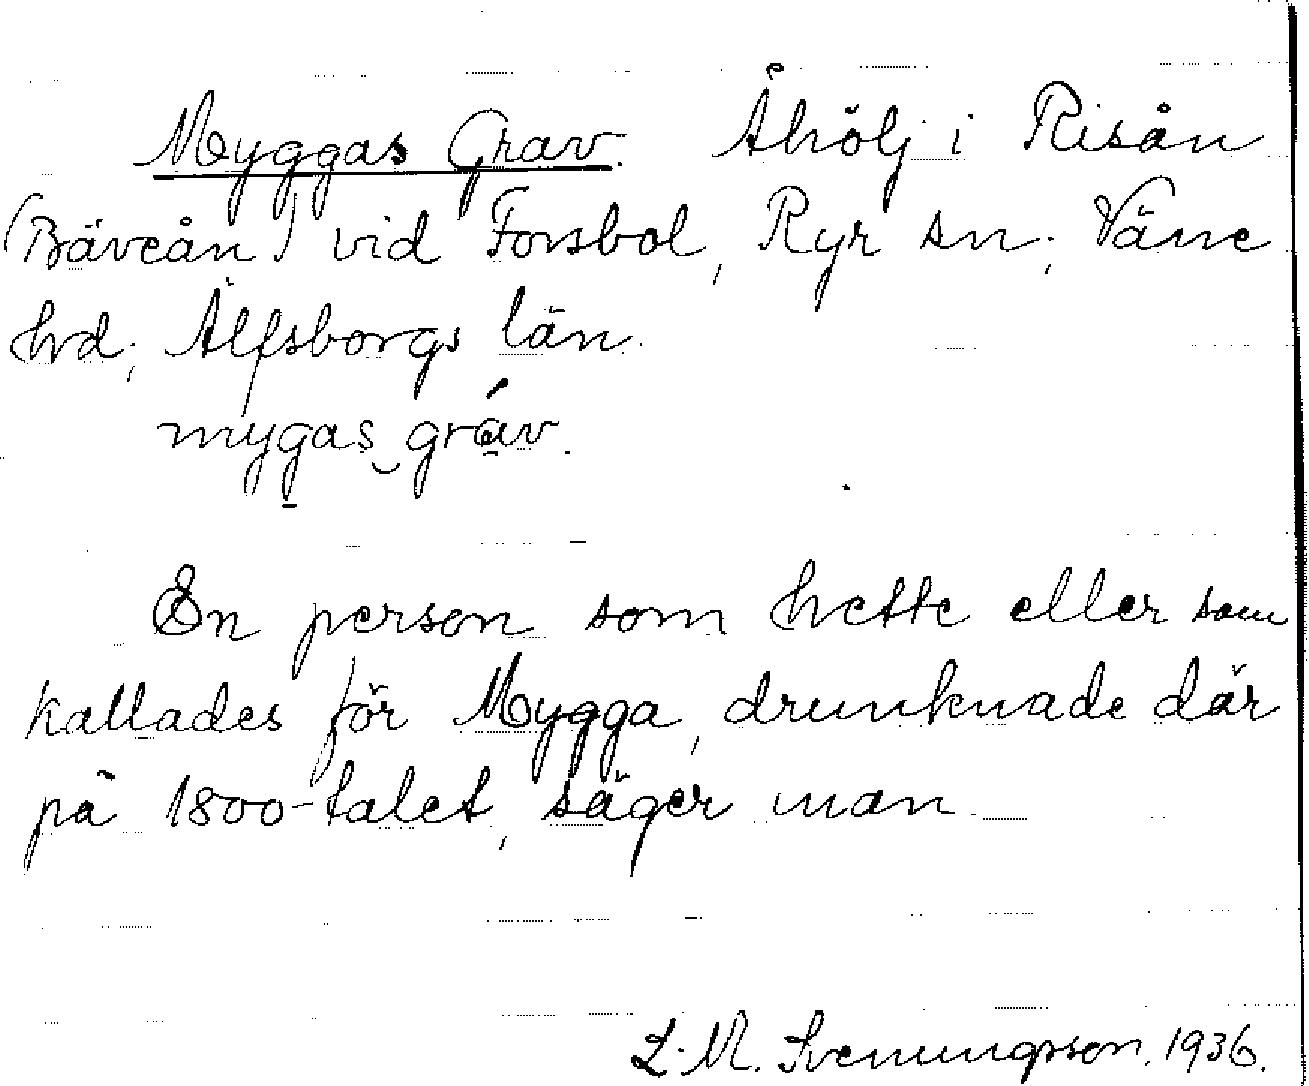 Myggas Grav. Åhölj i Risån
(Bäveån) vid Forsbol, Ryr sn; Väne
hd; Älfsborgs län.
mygas gráv.
En person som hette eller som
kallades för Mygga, drunknade där
på 1800-talet, säger man
L. M. Svenungsson. 1936.